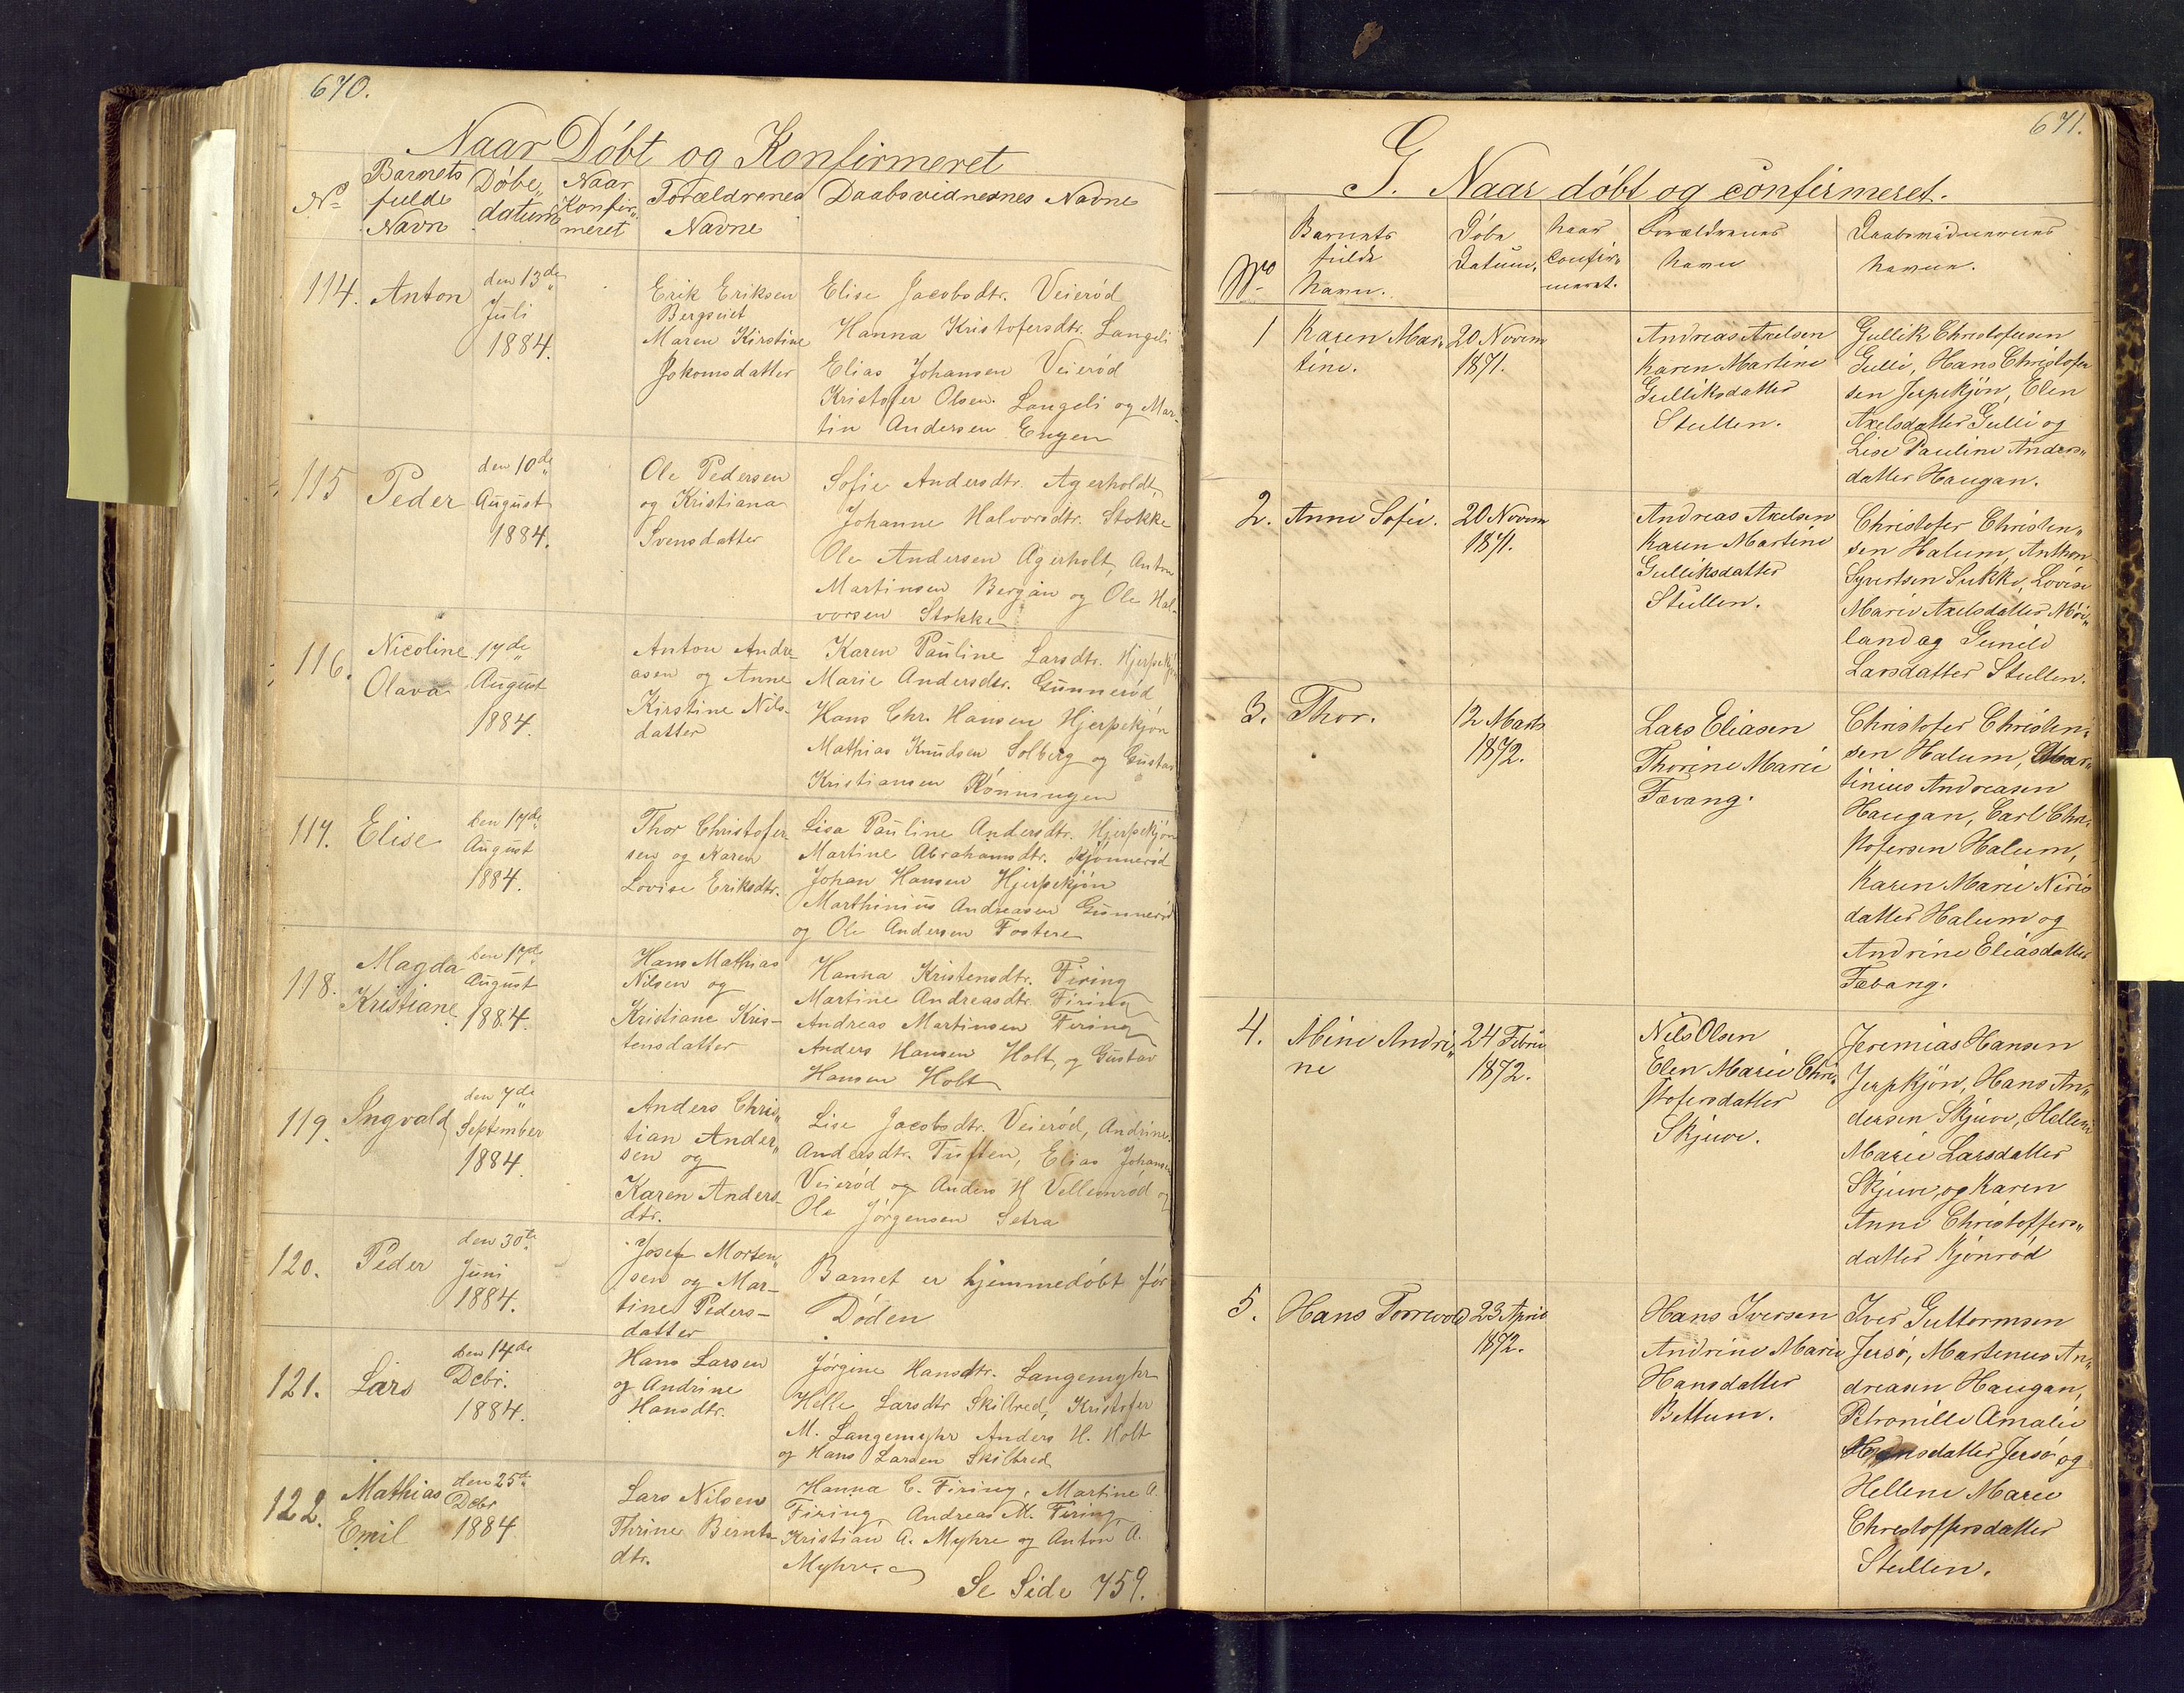 670.
Naar Döbt og Konfirmeret
No Barnets fulde Navn Döbe„ datum Naar Konfir„ meret Forældrenes Navne Daabsvidnernes Navne
114. Anton
den 13de
Juli
1884.
Erik Eriksen
Bergseiet
Maren Kirstine
Jokomsdatter
Elise Jacobsdtr. Veieröd
Hanna Kristofersdtr. Langeli
Elias Johansen Veieröd
Kristofer Olsen. Langeli og Mar-
tin Andersen Engen
115 Peder
den 10de
August
1884.
Ole Pedersen
og Kristiana
Svensdatter
Sofie Andersdtr. Agerholdt,
Johanne Halvorsdtr. Stokke
Ole Andersen Agerholt, Anton
Martinsen Bergan og Ole Hal-
vorsen Stokke
116. Nicoline
Olava
17de
August
1884.
Anton Andre
asen og Anne
Kirstine Nils-
datter
Karen Pauline Larsdtr. Hjerpekjön
Marie Andersdtr. Gunneröd
Hans Chr. Hansen Hjerpekjön
Mathias Knudsen Solberg og Gustav
Kristiansen Rönningen
117. Elise
den 17de
August
1884.
Thor Christofer
sen og Karen
Lovise Eriksdtr.
Lisa Pauline Andersdtr. Hjerpekjön
Martine Abrahamsdtr. Kjönneröd
Johan Hansen Hjerpekjön
Marthinius Andreasen Gunneröd
og Ole Andersen Fostere
118. Magda
Kristiane
den 17de
August
1884.
Hans Mathias
Nilsen og
Kristiane Kris-
tensdatter
Hanna Kristensdtr. Firing
Martine Andreasdtr. Firing
Andreas Martinsen Firing
Anders Hansen Holt, og Gustav
Hansen Holt
119. Ingvald
den 7de
September
1884.
Anders Chris„
tian Ander„
sen og
Karen Anders-
dtr.
Lise Jacobsdtr. Veieröd, Andrine
Andersdtr. Tuften, Elias Johansen
Veieröd og Anders H Velleuröd og
Ole Jörgensen Setra
120. Peder
den 30te
Juni
1884.
Josef Morten„
sen og Mar-
tine Peders-
datter
Barnet er hjemmedöbt för
Döden
121. Lars
den 14de
Debr.
1884.
Hans Larsen
og Andrine
Hansdtr.
Jörgine Hansdtr. Langemyhr
Helle Larsdtr Skilbred, Kristofer
M. Langemyhr Anders H. Holt
og Hans Larsen Skilbred
122. Mathias
Emil
den 25de
Debr
1884.
Lars Nilsen
Thrine Bernts
dtr.
Hanna C. Firing, Martine A.
Firing, Andreas M. Firing,
Kristian A. Myhre og Anton A.
Myhre.
Se Side 759.
671.
G. Naar döbt og confirmeret.
No Barnets fulde Navn. Döbe Datum. Naar confir„ meret. Forældrenes Navn Daabsvidnernes Navne.
1 Karen Mar„
tine.
20 Novem
1871.
Andreas Axelsen
Karen Martine
Gulliksdatter
Stullen.
Gullik Christofersen
Gulli, Hans Christofer
sen Jerpekjön, Elen
Axelsdatter Gulli og
Lise Pauline Anders„
datter Haugan.
2. Anne Sofie.
20 Novem
1871.
Andreas Axelsen
Karen Martine
Gulliksdatter
Stullen.
Christofer Christen„
sen Halum, Anthon
Syvertsen Sukke, Lovise
Marie Axelsdatter Möi„
land og Gunild
Larsdatter Stullen.
3. Thor.
12 Marts
1872.
Lars Eliasen
Thorine Marie
Fævang.
Christofer Christen„
sen Halum, Mar„
tinius Andreasen
Haugan, Carl Chri„
stofersen Halum,
Karen Marie Niris
datter Halum og
Andrine Eliasdatter
Fævang.
4. Mine Andri„
ne
24 Febru
1872.
Nils Olsen
Elen Marie Chri„
stofersdatter
Skjuve.
Jeremias Hansen
Jerpkjön, Hans An„
dersen Skjuve, Hellene
Marie Larsdatter
Skjuve, og Karen
Anne Christoffers„
datter Kjönröd
5. Hans Torrewold
23 April
1872.
Hans Iversen
Andrine Marie
Hansdatter
Bettum.
Iver Guttormsen
Jersö, Martenus An„
dreasen Haugan,
Petronille Amalie
Hansdatter Jersö og
Hellene Marie
Christoffersdatter
Stullen.